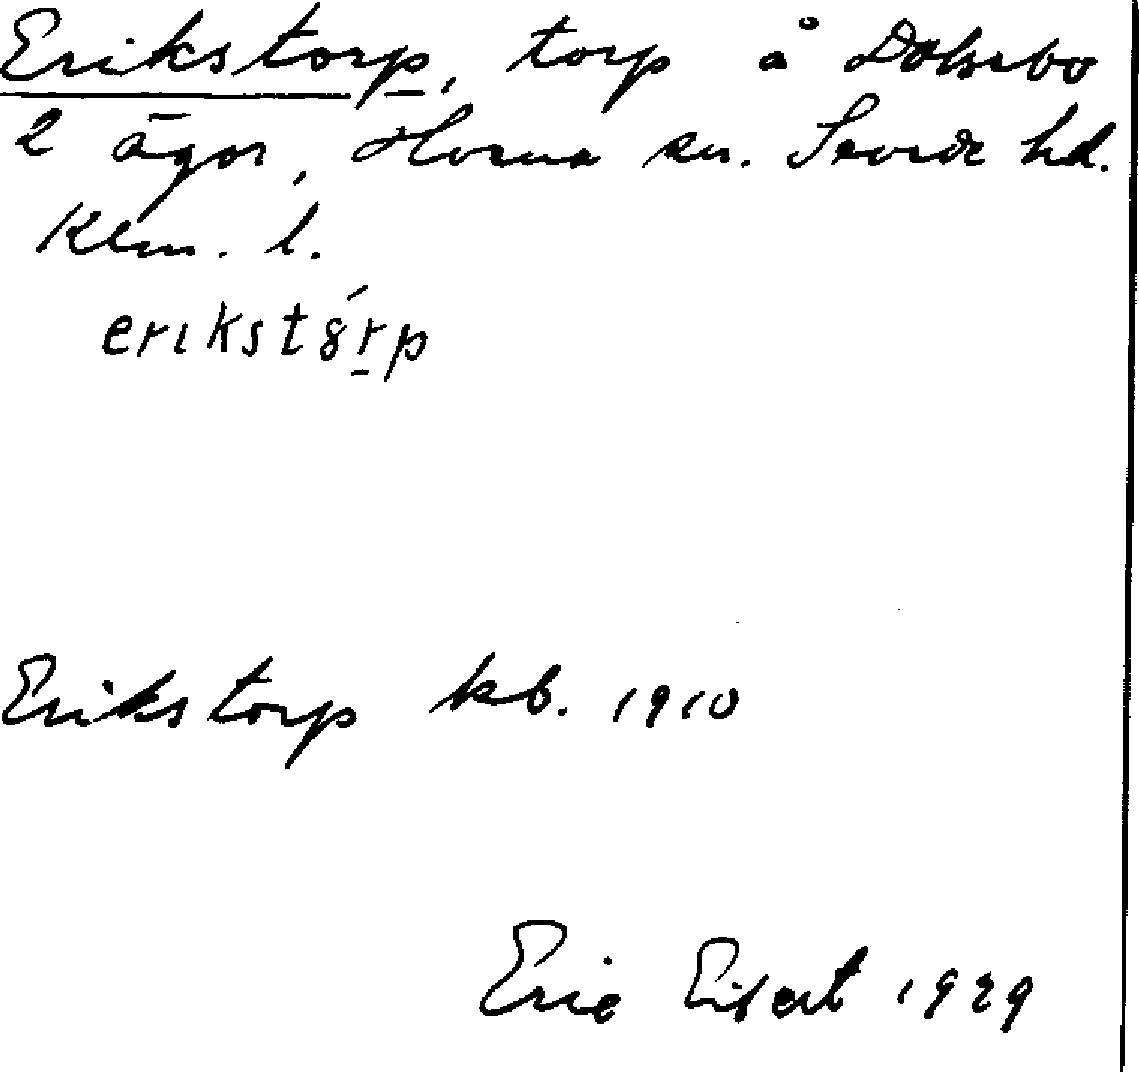 Erikstorp, torp å Dalsebo
2 ägor, Horna sn. Sevede hd.
Klm. l.
erikstȣ́rp
Erikstorp kb. 1910
Eric Eifert 1929